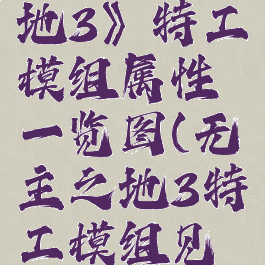 地3》特工
模组属性
一览图(无
主之地3特
工模组见